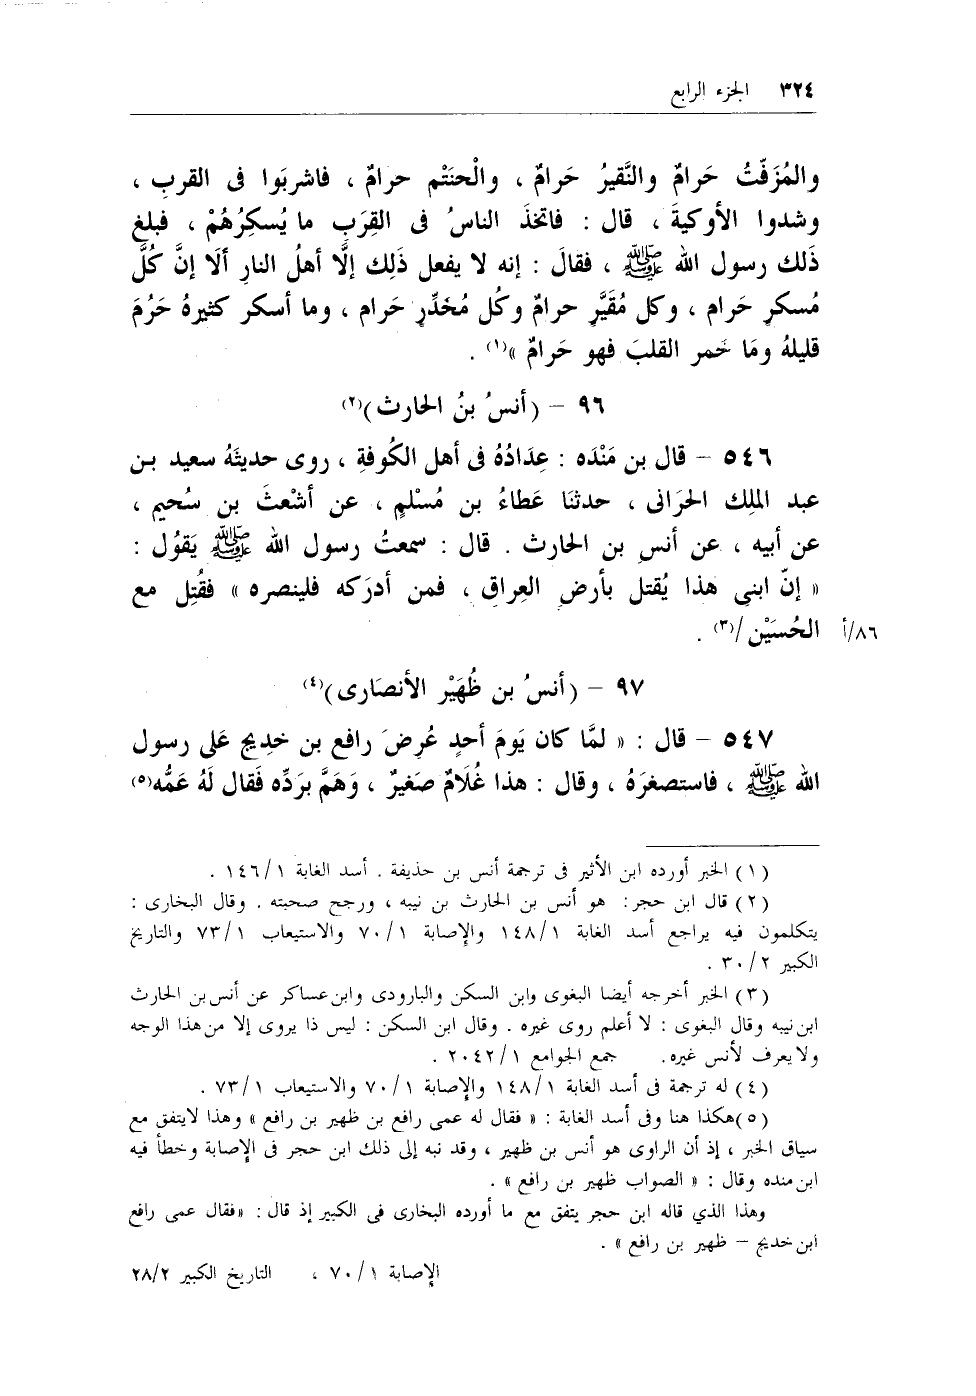 ٣٢٤ الجزء الرابع
والمُزَفّتُ حَرامٌ والنَّقيرُ حَرامٌ ، والْحنَتْم حرامٌ ، فاشربَوا فى القربِ ،
وشدوا الأوكيةَ ، قال : فاتخذَ الناسُ فى القِرَبِ ما يُسكِرُهُمْ ، فبلغ
ذَلك رسول الله ﷺ ، فقالَ : إنه لا يفعل ذَلِك إلَّا أهلُ النارِ ألَا إنَّ كُلَّ
مُسكرٍ حَرام ، وكل مُقَيَّرٍ حرامٌ وكُل مُخَدِّرٍ حَرام ، وما أسكر كثيرهُ حَرُمَ
قليلهُ ومَا خَمر القلبَ فهو حَرامٌ »(١) .
٩٦ – (أنسُ بنُ الحارث)(٢)
٥٤٦ – قال بن مَنْدَه : عِدَادُهُ فى أهل الكُوفةِ ، روى حديثَهُ سعيد بـن
عبد الملِك الحرَانى ، حدثنَا عَطاءُ بن مُسْلمٍ ، عن أشْعثَ بن سُحيم ،
عن أبيه ، عن أنسِ بن الحارث . قال : سمعتُ رسول الله ﷺ يَقوُل :
« إنّ ابنىِ هذا يُقتل بأرضِ العِراقِ ، فمن أدرَكه فلينصره » فقُتِل مع
الحُسَيْن /(٣) . ٨٦/أ
٩٧ – (أنسُ بن ظُهَيْر الأنصَارى)(٤)
٥٤٧ – قال : « لمَّا كان يَومَ أحدٍ عُرِضَ رافع بن خدِيج عَلى رسول
الله ﷺ ، فاستصغرَهُ ، وقال : هذا غُلَامٌ صَغيرٌ ، وَهَمَّ بَردِّه فَقال لَهُ عَمُّه(٥)
(١) الخبر أورده ابن الأثير فى ترجمة أنس بن حذيفة . أسد الغابة ١٤٦/١ .
(٢) قال ابن حجر: هو أنس بن الحارث بن نبيه ، ورجح صحبته . وقال البخارى :
يتكلمون فيه يراجع أسد الغابة ١٤٨/١ والإصابة ٧٠/١ والاستيعاب ٧٣/١ والتاريخ
الكبير ٣٠/٢ .
(٣) الخبر أخرجه أيضا البغوى وابن السكن والبارودى وابن عساكر عن أنس بن الحارث
ابن نبيه وقال البغوى : لا أعلم روى غيره . وقال ابن السكن : ليس ذا يروى إلا من هذا الوجه
ولا يعرف لأنس غيره. جمع الجوامع ٢٠٤٢/١ .
(٤) له ترجمة فى أسد الغابة ١٤٨/١ والإصابة ٧٠/١ والاستيعاب ٧٣/١ .
(٥)هكذا هنا وفى أسد الغابة : « فقال له عمى رافع بن ظهير بن رافع » وهذا لايتفق مع
سياق الخبر ، إذ أن الراوى هو أنس بن ظهير ، وقد نبه إلى ذلك ابن حجر فى الإصابة وخطأ فيه
ابن منده وقال : « الصواب ظهير بن رافع » .
وهذا الذي قاله ابن حجر يتفق مع ما أورده البخارى فى الكبير إذ قال : «فقال عمى رافع
ابن خديج – ظهير بن رافع » .
الإصابة ٧٠/١ ، التاريخ الكبير ٢٨/٢